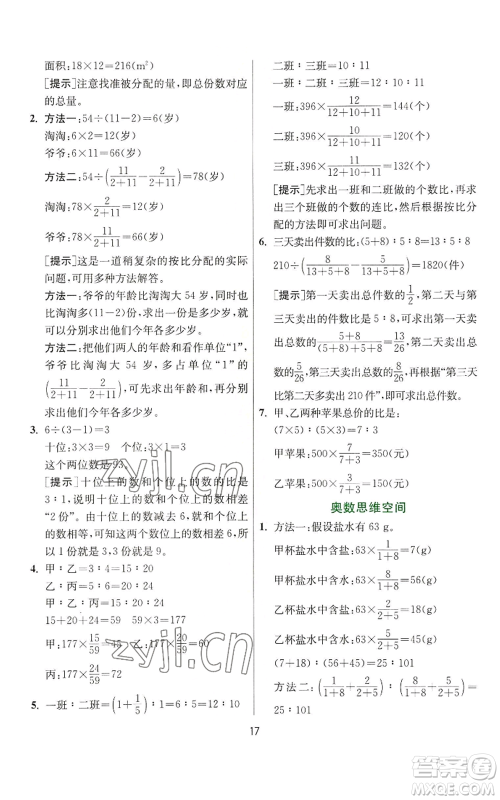 面积:18×12=216(m²)
[提示]注意找准被分配的量,即总份数对应
的总量。
2. 方法一:54÷(11−2)=6(岁)
淘淘:6×2=12(岁)
爷爷:6×11=66(岁)
方法二:54÷(11/2+11−2/2+11)=78(岁)
淘淘:78×2/2+11=12(岁)
爷爷:78×11/2+11=66(岁)
[提示]这是一道稍复杂的按比分配的实际
问题,可用多种方法解答。
方法一:爷爷的年龄比淘淘大 54 岁,相当于
多(11−2)份,可求出每份是多少,进而可以
求出他们今年各多少岁。
方法二:把他们两人的年龄和看作单位“1”,
爷爷比淘淘大 54 岁,多占单位“1”的
(11/2+11−2/2+11),可先求出年龄和,再分别
求出他们今年各多少岁。
3. 6÷(3−1)=3
十位:3×3=9 个位:3×1=3
这个两位数是 93。
[提示]十位上的数和个位上的数的比是
3∶1,说明十位上的数和个位上的数相差
“2 份”。由十位上的数减去 6,就和个位上的
数相等,可知十位上的数与个位上的数相差
6,即“2 份”是 6,据此可求出这个两位数。
4. 甲∶乙=3∶4=15∶20
乙∶丙=5∶6=20∶24
甲∶乙∶丙=15∶20∶24
15+20+24=59 59×3=177
甲:177×15/59=45 乙:177×20/59=60
丙:177×24/59=72
5. 一班∶二班=(1+1/5)∶1=6∶5=12∶10
二班∶三班=10∶11
一班∶二班∶三班=12∶10∶11
一班:396×12/12+10+11=144(个)
二班:396×10/12+10+11=120(个)
三班:396×11/12+10+11=132(个)
[提示]先求出一班和二班做的个数比,再求
出三个班做的个数的连比,然后采用按比分
配的方法即可求出问题。
6. 三天卖出件数的比:(5+8)∶5∶8=13∶5∶8
210÷(8/13+5+8−5/13+5+8)=1820(件)
[提示]第一天卖出总件数的1/2,第二天与第
三天卖出件数的比是 5∶8,可以求出第一天卖
出总数的5+8/(5+8)×2=13/26,第二天卖出总
数的5/26,第三天卖出总数的8/26,再根据“第三天
比第二天多卖出 210 件”,求出卖出的总件数。
7. 甲、乙两种苹果总价的比:
(7×5)∶(5×3)=7∶3
甲苹果:500×7/7+3=350(元)
乙苹果:500×3/7+3=150(元)
奥数思维空间
1. 方法一:假设盐水有 63 g。
甲杯盐水中含盐:63×1/1+8=7(g)
甲杯盐水中含水:63×8/1+8=56(g)
乙杯盐水中含盐:63×2/2+5=18(g)
乙杯盐水中含水:63×5/2+5=45(g)
(7+18)∶(56+45)=25∶101
方法二:(1/1+8+2/2+5)∶(8/1+8+5/2+5)=
25∶101
17
zyjl.cn
zyjl.cn
作业精灵